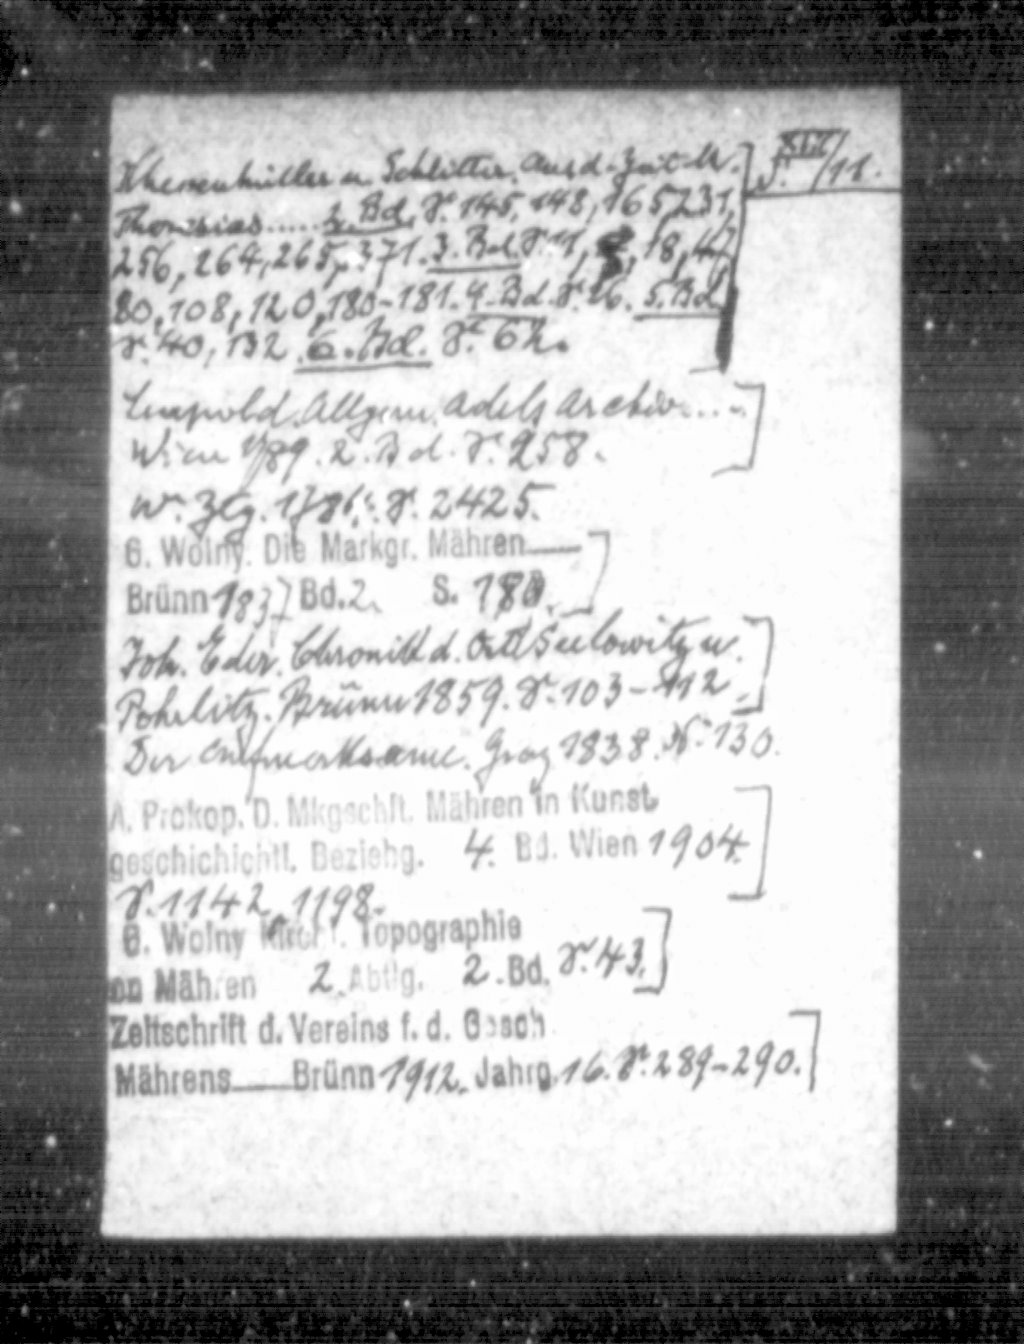 XLII/11.
Khevenhüller u. Schlitter. Aus d. Zeit M.
Theresias..... 2. Bd. S. 145, 148, 165, 231,
256, 264, 265, 371. 3. Bd. S. 11, 18, 47
80, 108, 120, 180-181. 4. Bd. S. 26. 5. Bd.
S. 40, 132. 6. Bd. S.
Leupold. Allgem. Adels Archiv....
Wien 1789. 2. Bd. S. 258.
W. Ztg. 1786. S. 2425.
G. Wolny. Die Markgr. Mähren
Brünn 1837 Bd. 2. S. 180.
Joh. Eder. Chronik d. Orte Seelowitz u.
Pohrlitz. Brünn 1859. S. 103-112.
Der Aufmerksame. Graz 1838. Nr. 130.
A. Prokop. D. Mkgschft. Mähren in Kunst
geschichichtl. Beziehg. 4. Bd. Wien 1904.
S. 1142, 1198.
G. Wolny Kirchl. Topographie
on Mähren 2. Abtlg. 2. Bd. S. 43.
Zeitschrift d. Vereins f. d. Gesch
Mährens Brünn 1912. Jahrg. 16. S. 289-290.